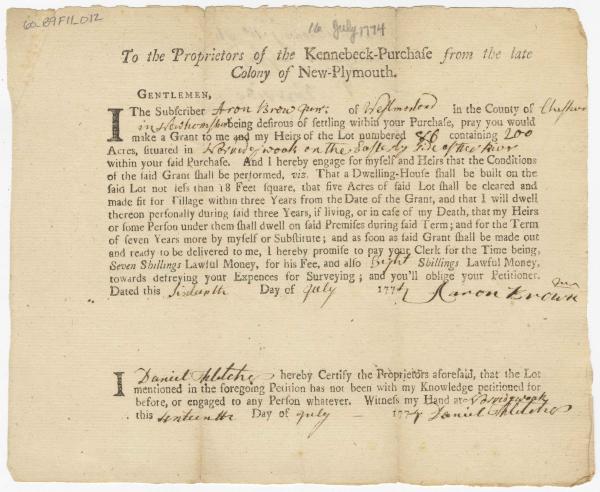 60 B9F11D12
16 July 1774
To the Proprietors of the Kennebeck-Purchase from the late
Colony of New-Plymouth.
GENTLEMEN,
I The Subscriber Aron Brown Junr: of Westmorland in the County of Chesher
in Newhamshire being desirous of settling within your Purchase, pray you would
make a Grant to me and my Heirs of the Lot numbered 86 containing 200
Acres, situated in Noridgewook on the Easterly Side of the River
within your said Purchase. And I hereby engage for myself and Heirs that the Conditions
of the said Grant shall be performed, viz. That a Dwelling-House shall be built on the
said Lot not less than 18 Feet square, that five Acres of said Lot shall be cleared and
made fit for Tillage within three Years from the Date of the Grant, and that I will dwell
thereon personally during said three Years, if living, or in case of my Death, that my Heirs
or some Person under them shall dwell on said Premises during said Term; and for the Term
of seven Years more by myself or Substitute; and as soon as said Grant shall be made out
and ready to be delivered to me, I hereby promise to pay your Clerk for the Time being,
Seven Shillings Lawful Money, for his Fee, and also Eight Shillings Lawful Money,
towards defreying your Expences for Surveying; and you'll oblige your Petitioner.
Dated this sixteenth Day of July 1774 Aaron Brown Junr
I Daniel hereby Certify the Proprietors aforesaid, that the Lot
mentioned in the foregoing Petition has not been with my Knowledge petitioned for
before, or engaged to any Person whatever. Witness my Hand at Noridgewook
this sixteenth Day of July — 1774 Daniel